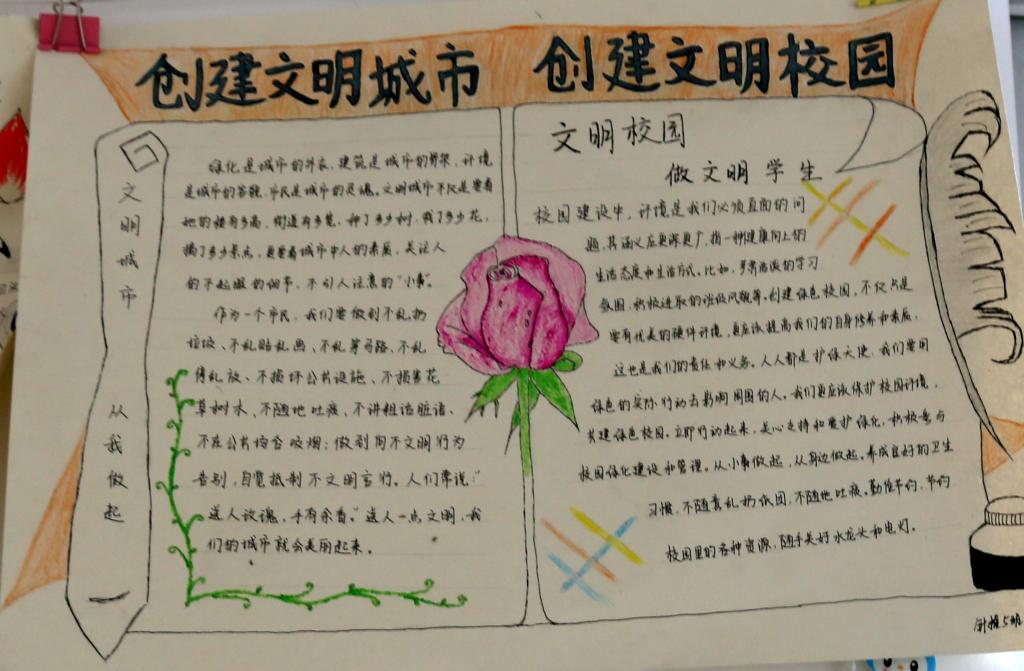 创建文明城市 创建文明校园
文明城市
从我做起
绿化是城市的外衣,建筑是城市的骨架,环境
是城市的容貌,市民是城市的灵魂。文明城市不仅是要看
她的楼有多高,街道有多宽,种了多少树,栽了多少花,
搞了多少景点,更要看城市中人的素质,关注人
们不起眼的细节,不引人注意的“小事”。
作为一个市民,我们要做到不乱扔
垃圾、不乱贴乱画、不乱穿马路、不乱
停乱放、不损坏公共设施、不损害花
草树木、不随地吐痰、不讲粗话脏话、
不在公共场合吸烟;做到同不文明行为
告别,自觉抵制不文明言行。人们常说:“
送人玫瑰,手有余香。”送人一点文明,我
们的城市就会美丽起来。
文明校园
做文明学生
校园建设中,环境是我们必须直面的问
题,其涵义应更深更广,指一种健康向上的
生活态度和生活方式。比如,学习
氛围,积极进取的班级风貌等。创建绿色校园,不仅只是
要有优美的硬件环境,更应该提高我们的自身修养和素质,
这也是我们的责任和义务。人人都是护绿天使,我们要用
绿色的实际行动去影响周围的人。我们更应该保护校园环境,
共建绿色校园。立即行动起来,关心支持和爱护绿化,积极参与
校园绿化建设和管理。从小事做起,从身边做起。养成良好的卫生
习惯,不随意乱扔纸团,不随地吐痰。勤俭节约,节约
校园里的各种资源,随手关好水龙头和电灯。
5班